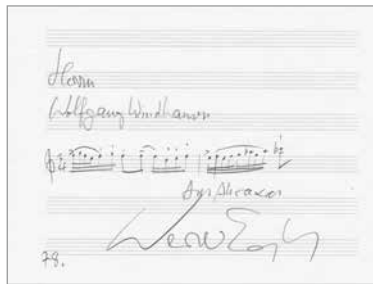 Herrn
Wolfgang Windhausen
Aus Abraxas
Werner Egk
78.